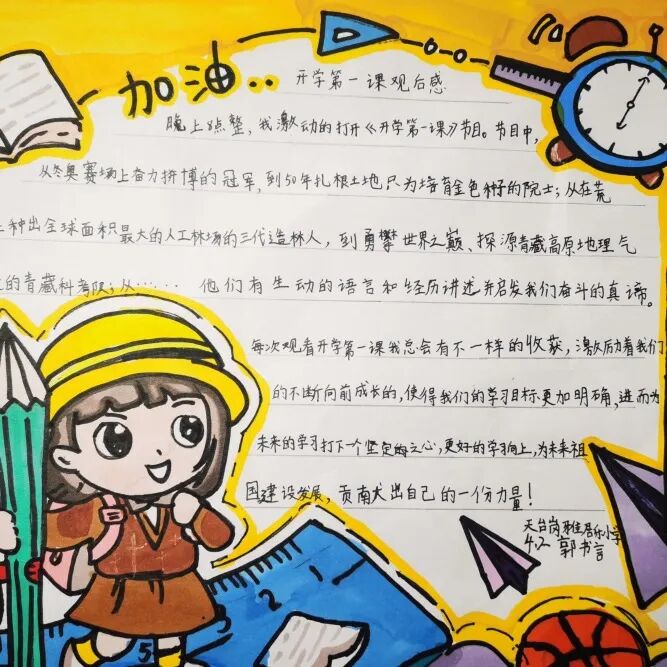 加油..
开学第一课观后感
晚上8点整，我激动的打开《开学第一课》节目。节目中，
从冬奥赛场上奋力拼博的冠军，到50年扎根土地只为培育金色种子的院士；从在荒
上种出全球面积最大的人工林场的三代造林人，到勇攀世界之巅、探源青藏高原地理气
的青藏科考队；从…… 他们有生动的语言和经历讲述并启发我们奋斗的真谛。
每次观看开学第一课我总会有不一样的收获，激励着我们
的不断向前成长的，使得我们的学习目标更加明确，进而为
未来的学习打下一个坚定的之心，更好的学习向上，为未来祖
国建设发展，贡献出自己的一份力量！
天台岗雅居乐小学
4.2 郭书言
1 2
5